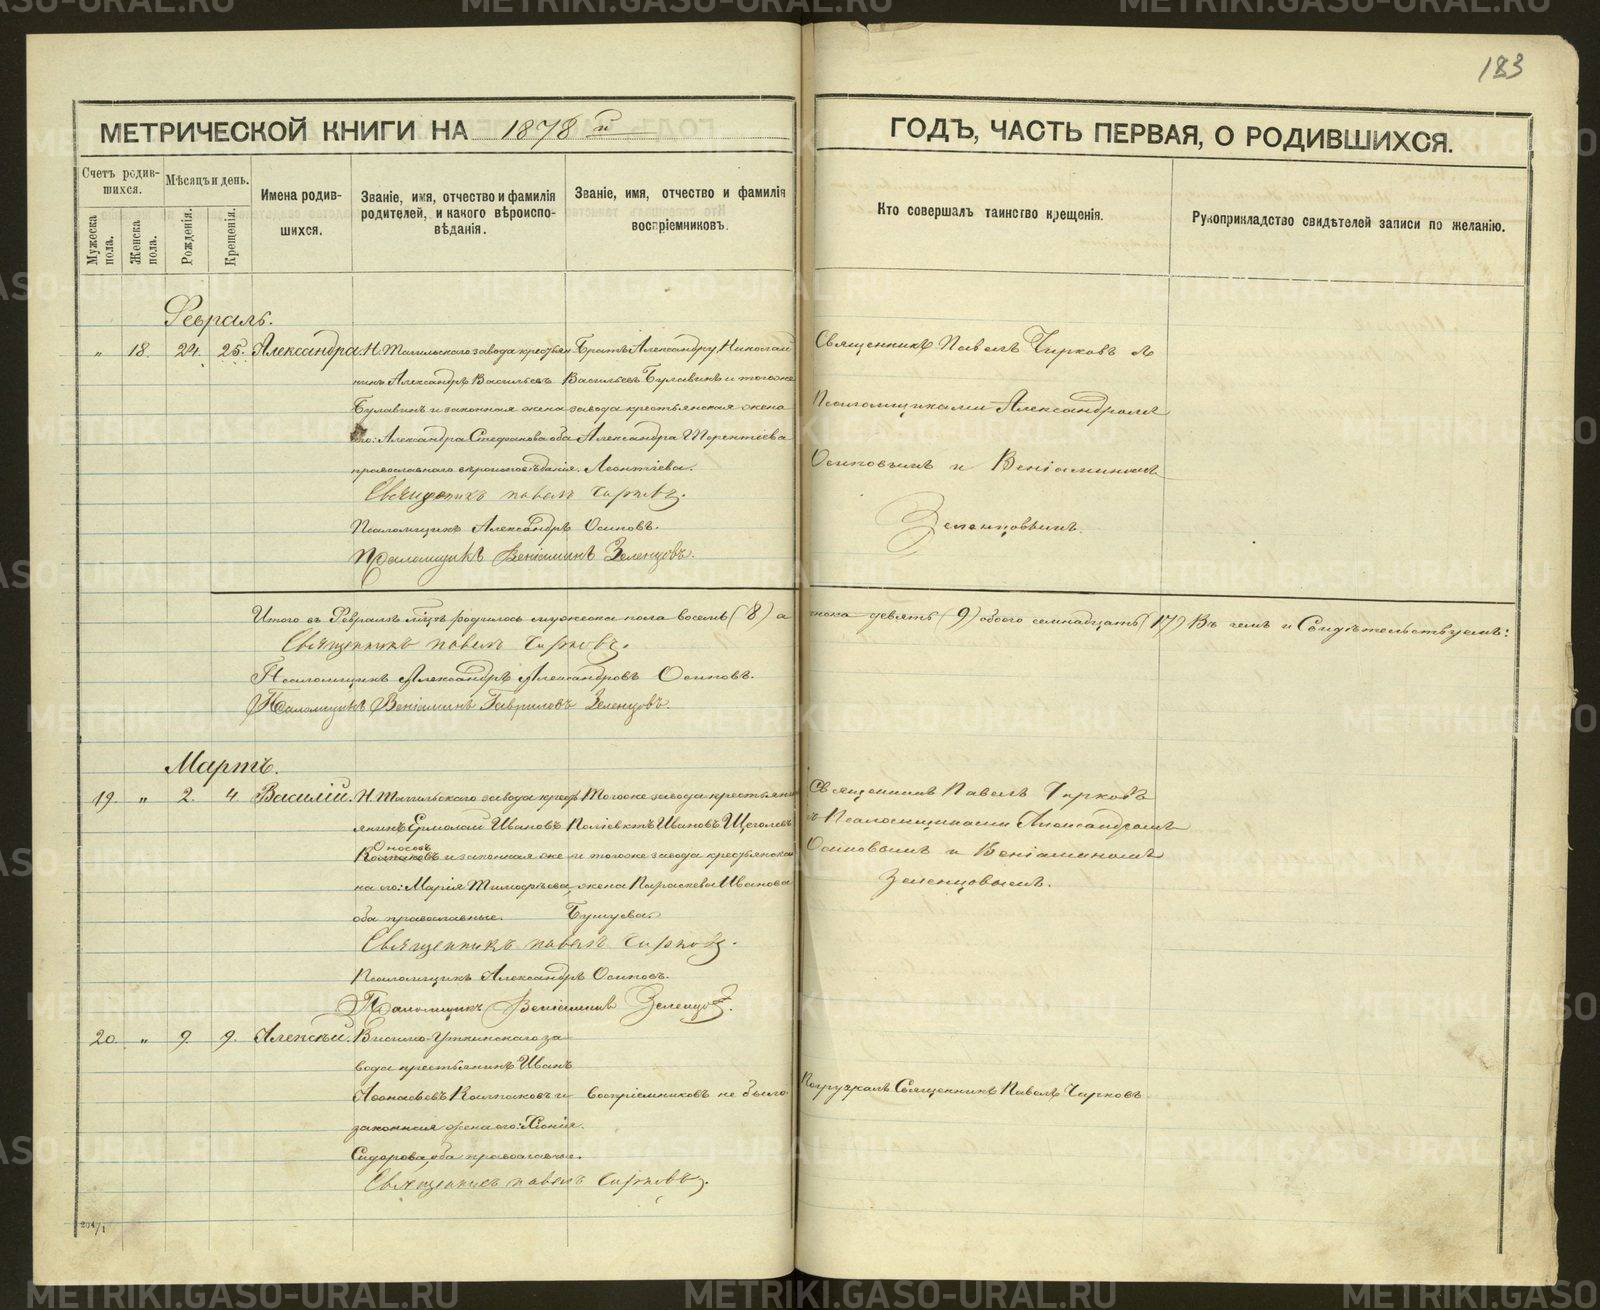 183
МЕТРИЧЕСКОЙ КНИГИ НА 1878 й
ГОДЪ, ЧАСТЬ ПЕРВАЯ, О РОДИВШИХСЯ.
Счетъ родив-
шихся.
Мужеска пола.
Женска пола.
Мѣсяцъ и день.
Рожденія.
Крещенія.
Имена родив-
шихся.
Званіе, имя, отчество и фамилія
родителей, и какого вѣроиспо-
вѣданія.
Званіе, имя, отчество и фамилія
воспріемниковъ.
Кто совершалъ таинство крещенія.
Рукоприкладство свидѣтелей записи по желанію.
Февраль.
" 18. 24. 25. Александра.
Н. Тагильскаго завода крестьян
нинъ Александръ Васильевъ
Булавинъ и законная жена
его: Александра Стефанова оба
православнаго вѣроисповѣданія.
Братъ Александру, Николай
Васильевъ Булавинъ и тогоже
завода крестьянская жена
Александра
Леонтіева.
Священникъ Павелъ Чирковъ.
Псаломщикъ Александръ Осиповъ.
Псаломщикъ Веніаминъ Зеленцовъ.
Священникъ Павелъ Чирковъ съ
Псаломщиками Александромъ
Осиповымъ и Веніаминомъ
Зеленцовымъ.
Итого въ Февралѣ мцѣ родилось мужеска пола восемь (8) а
женска девять (9) обоего семнадцать (17) Въ чемъ и Свидѣтельствуемъ:
Священникъ Павелъ Чирковъ.
Псаломщикъ Александръ Александровъ Осиповъ.
Псаломщикъ Веніаминъ Гавриловъ Зеленцовъ.
Мартъ.
19. " 2. 4 Василій.
Н. Тагильскаго завода крест
янинъ Ермолай Ивановъ
Оносовъ
Колпаковъ и законная же
на его: Марія Тимофѣева,
оба православные.
Тогоже завода крестьянин
Поліевктъ Ивановъ Щеголевъ
и тогоже завода крестьянска
жена Параскева Иванова
Бушуева.
Священникъ Павелъ Чирковъ.
Псаломщикъ Александръ Осиповъ.
Псаломщикъ Веніаминъ Зеленцовъ.
Священникъ Павелъ Чирковъ
съ Псаломщиками Александромъ
Осиповымъ и Веніаминомъ
Зеленцовымъ.
20. " 9. 9. Алексѣй.
Висимо-Уткинскаго за
вода крестьянинъ Иванъ
Афонасьевъ Колпаковъ и
законная жена его: Хіонія
Сидорова, оба православные.
Воспріемниковъ не было.
Погружалъ Священникъ Павелъ Чирковъ
Священникъ Павелъ Чирковъ.
204/1
METRIKI.GASO-URAL.RU